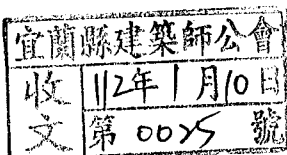 宜蘭縣建築師公會
收文
112年1月10日
第0025號